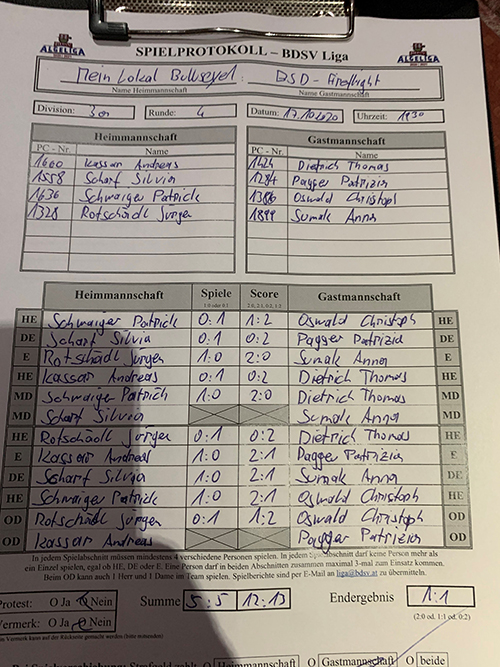 ALSLIGA ALSLIGA
SPIELPROTOKOLL – BDSV Liga
Mein Lokal Bullseye 1 : DSD - Firefight
Name Heimmannschaft Name Gastmannschaft
Division: 3 on Runde: 4 Datum: 17.10.2020 Uhrzeit: 1930
Heimmannschaft Gastmannschaft
PC - Nr. Name PC - Nr. Name
1600 Kassar Andreas 1424 Dietrich Thomas
1558 Scharf Silvia 1284 Pagger Patrizia
1636 Schwaiger Patrick 1386 Oswald Christoph
1328 Rotschädl Jürgen 1899 Sumak Anna
Heimmannschaft Spiele Score Gastmannschaft
1:0 oder 0:1 2:0, 2:1, 0:2, 1:2
HE Schwaiger Patrick 0:1 1:2 Oswald Christoph HE
DE Scharf Silvia 0:1 0:2 Pagger Patrizia DE
E Rotschädl Jürgen 1:0 2:0 Sumak Anna E
HE Kassar Andreas 0:1 0:2 Dietrich Thomas HE
MD Schwaiger Patrick 1:0 2:0 Dietrich Thomas MD
MD Scharf Silvia Sumak Anna MD
HE Rotschädl Jürgen 0:1 0:2 Dietrich Thomas HE
E Kassar Andreas 1:0 2:1 Pagger Patrizia E
DE Scharf Silvia 1:0 2:1 Sumak Anna DE
HE Schwaiger Patrick 1:0 2:1 Oswald Christoph HE
OD Rotschädl Jürgen 0:1 1:2 Oswald Christoph OD
OD Kassar Andreas Pagger Patrizia OD
In jedem Spielabschnitt müssen mindestens 4 verschiedene Personen spielen. In jedem Spielabschnitt darf keine Person mehr als
ein Einzel spielen, egal ob HE, DE oder E. Eine Person darf in beiden Abschnitten zusammen maximal 3-mal zum Einsatz kommen.
Beim OD kann auch 1 Herr und 1 Dame im Team spielen. Spielberichte sind per E-Mail an liga@bdsv.at zu übermitteln.
Protest: O Ja O Nein Summe 5:5 12:13 Endergebnis 1:1
Vermerk: O Ja O Nein (2:0 od. 1:1 od. 0:2)
Vermerk kann auf der Rückseite gemacht werden (bitte mitsenden)
Bei Spielverschiebung: Strafgeld zahlt O Heimmannschaft O Gastmannschaft O beide